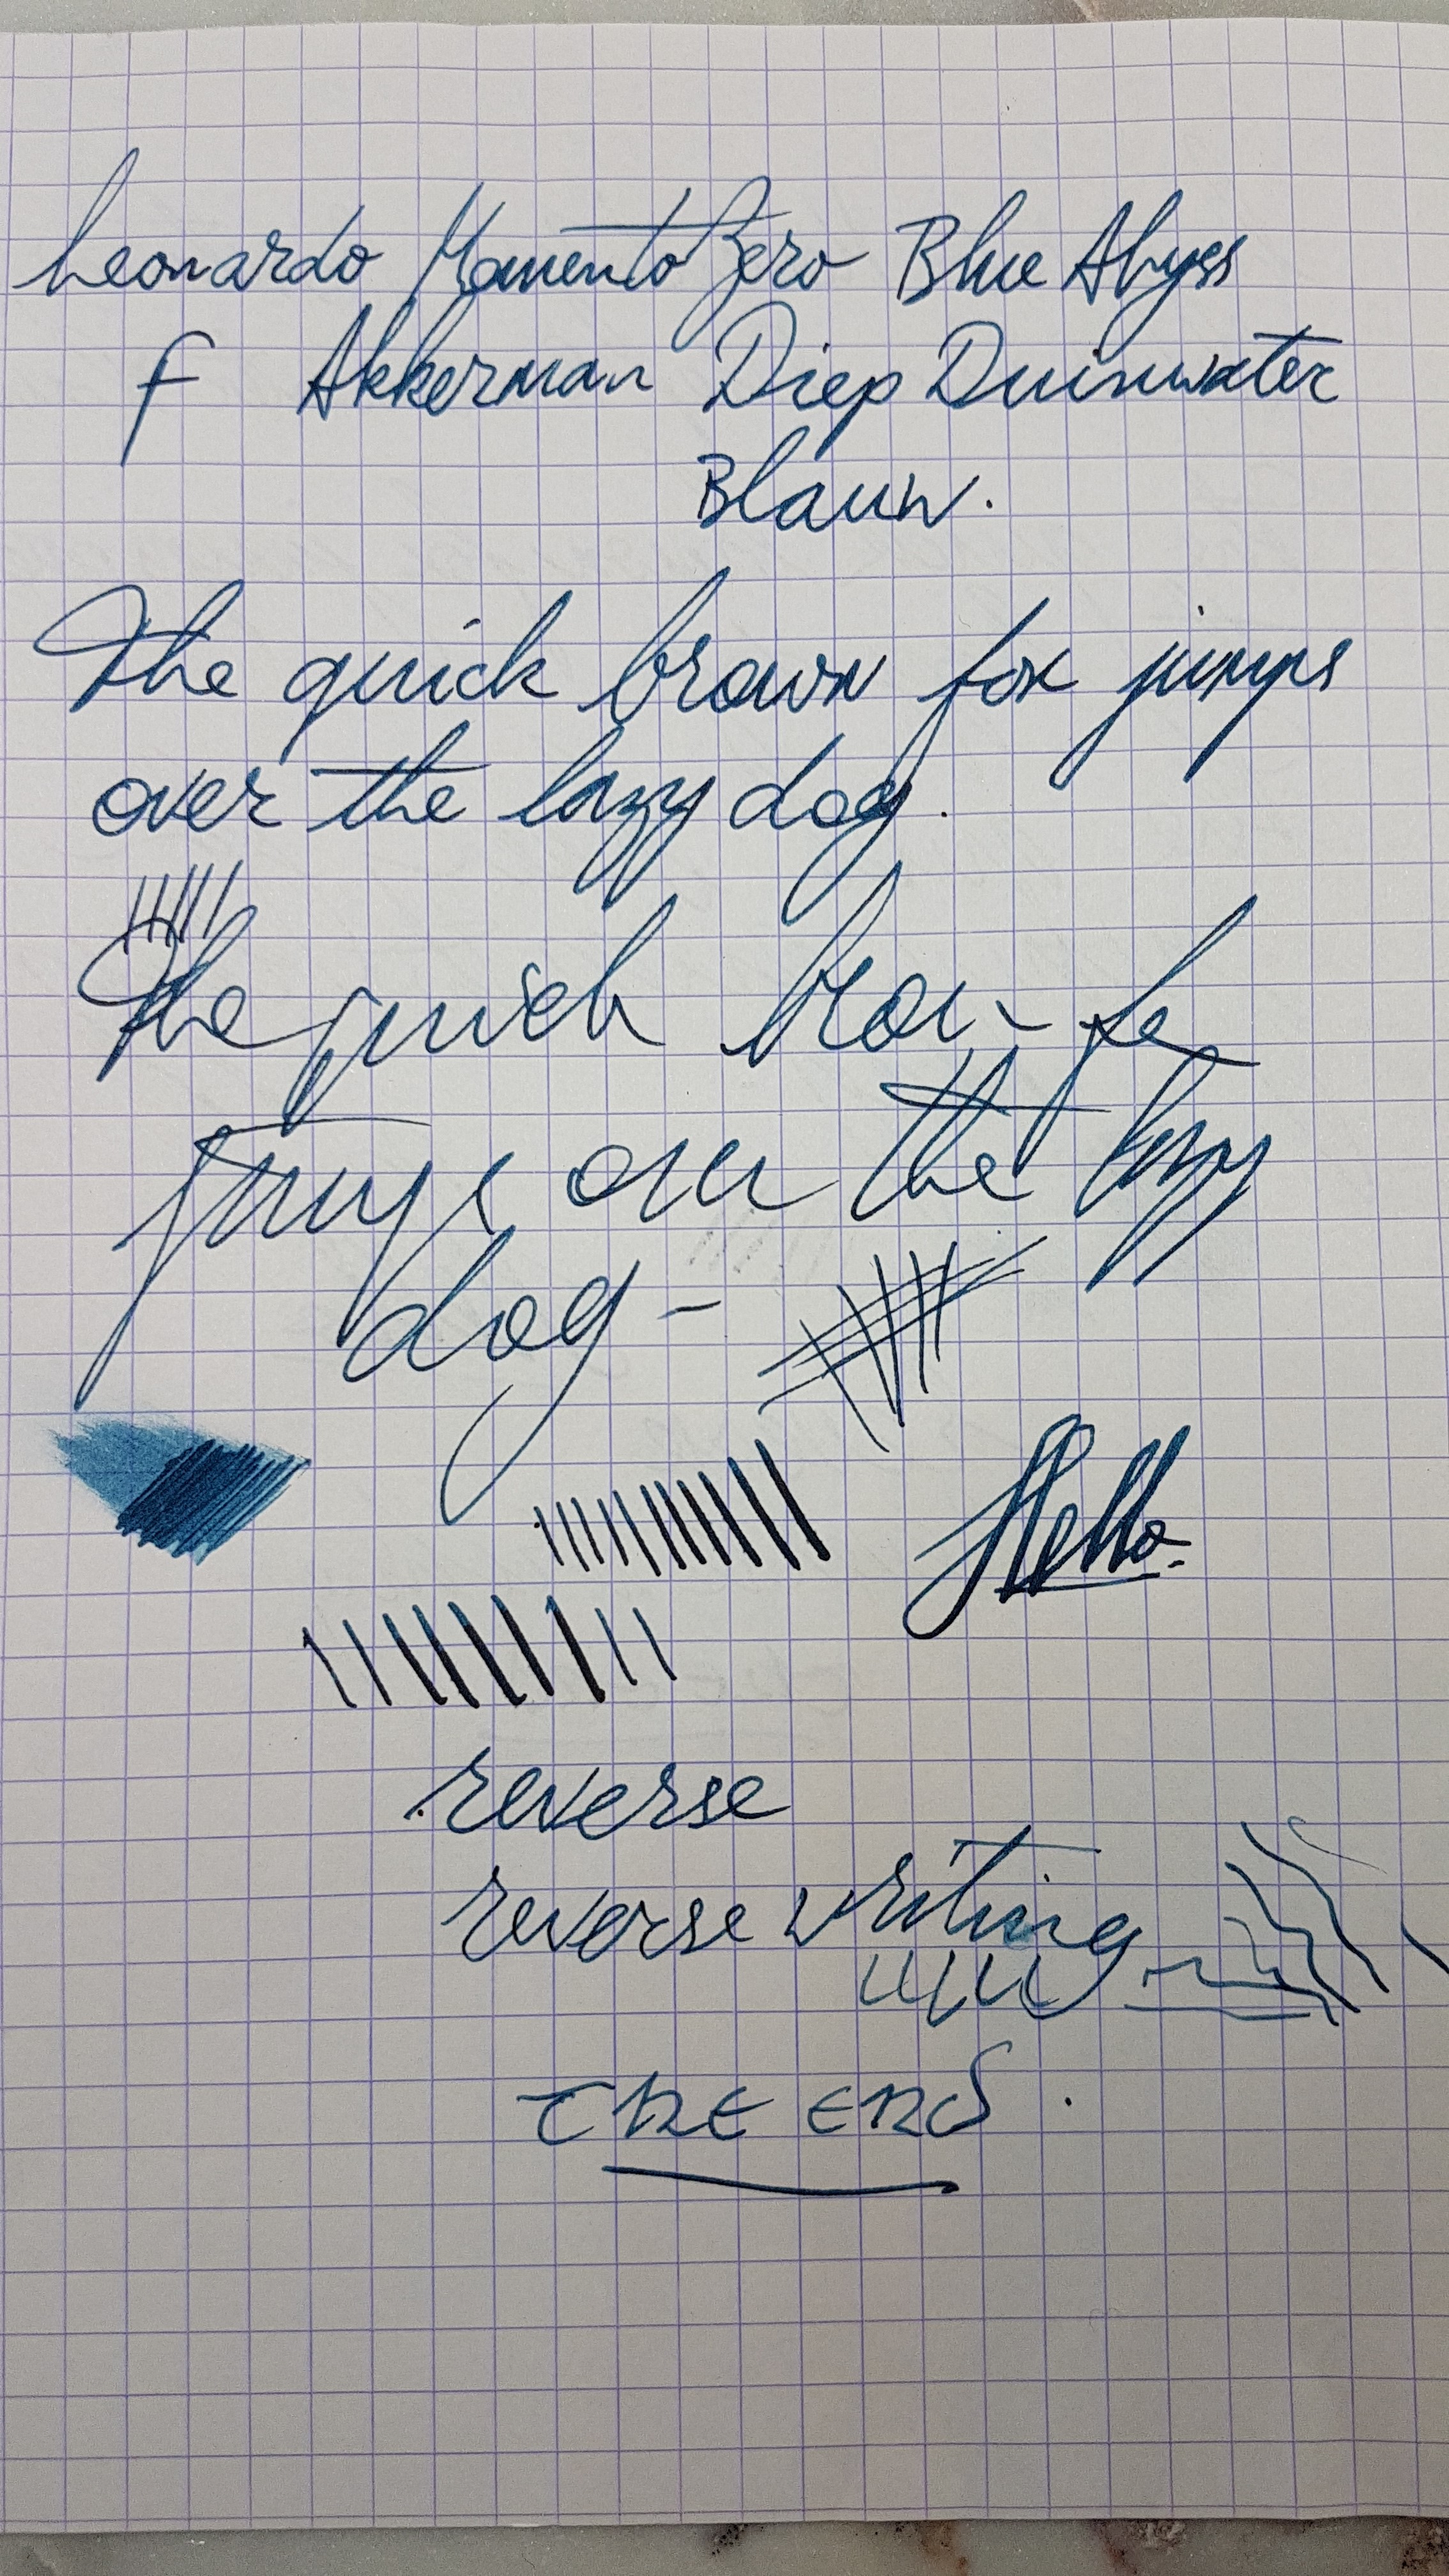 Leonardo Momento Zero Blue Abyss
F Akkerman Diep Duinwater
Blauw.
The quick brown fox jumps
over the lazy dog.
The quick brow fo
jumps over the lazy
dog -
Hello.
reverse
reverse writing
THE END.